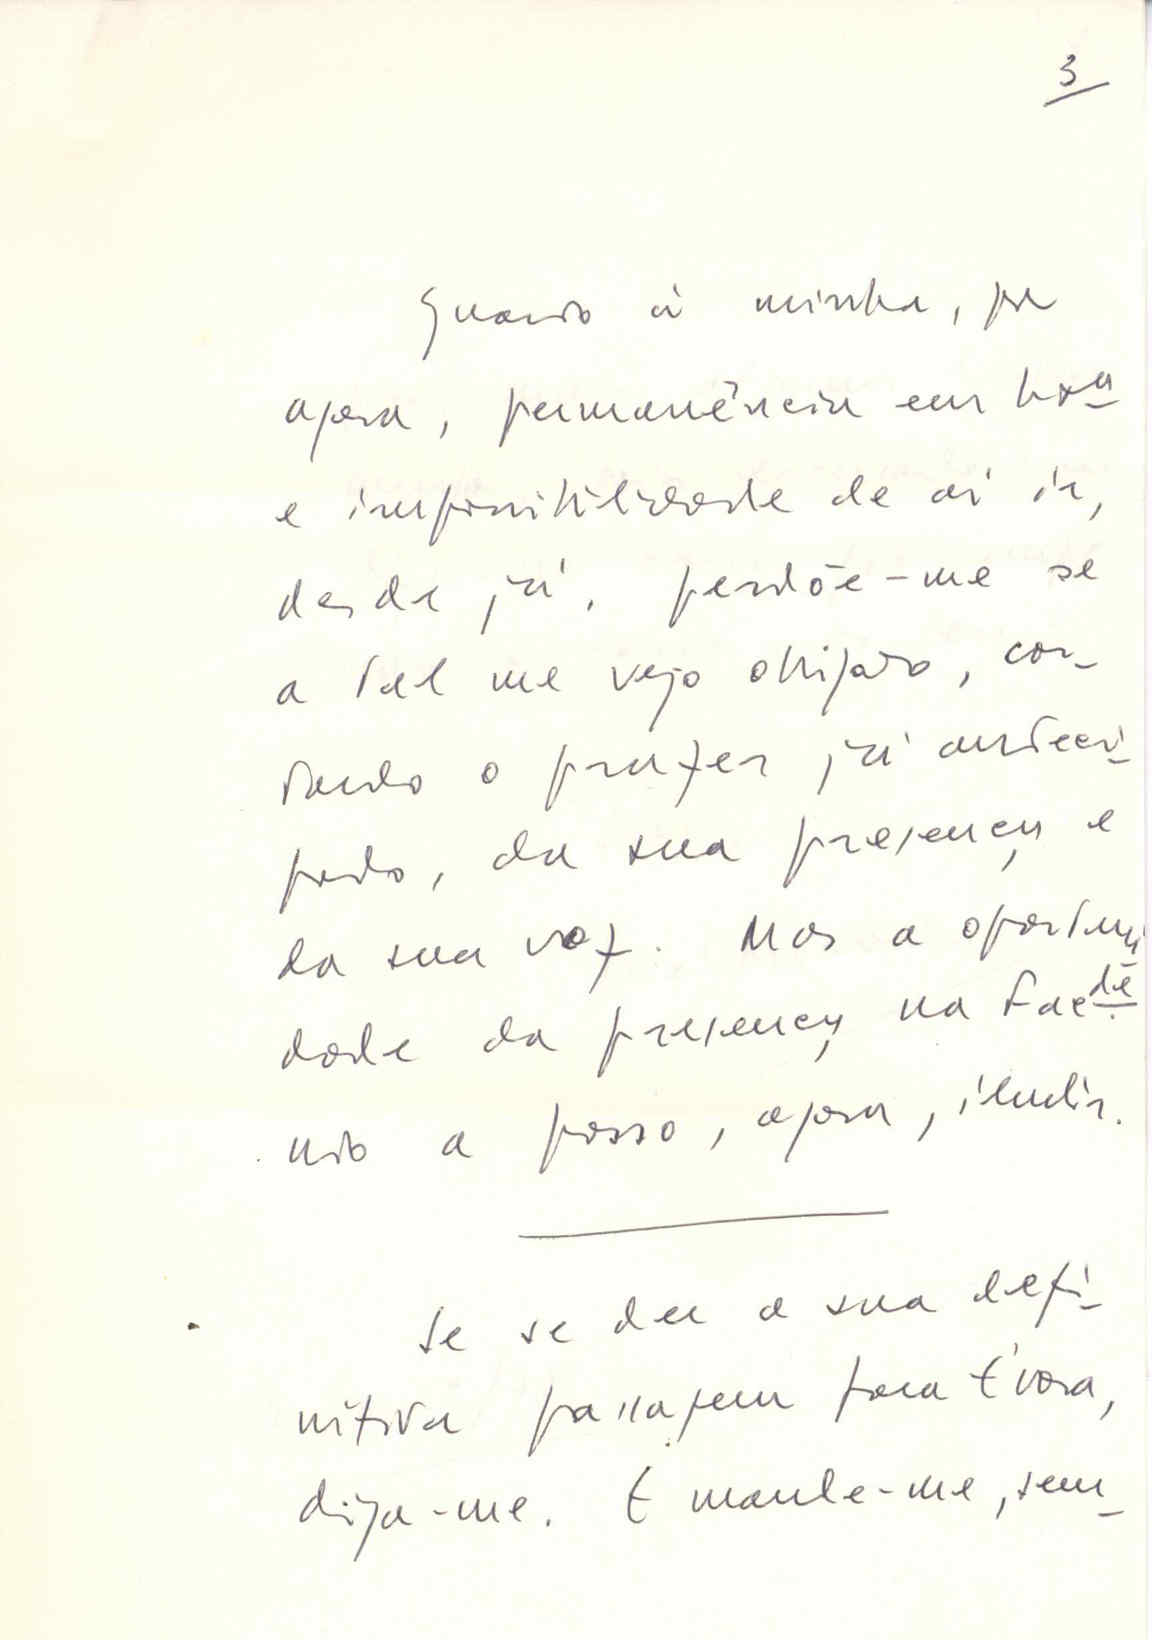 3
Quando à minha, por
agora, permanência em Lxª
e impossibilidade de aí ir,
desde já, perdôe-me se
a tal me vejo obrigado, cor-
tando o prazer, já anteci-
pado, da sua presença e
da sua voz. Mas a oportuni
dade da presença na Facdē
não a posso, agora, iludir.
Se se der a sua defi-
nitiva passagem para Évora,
diga-me. E mande-me, sem-